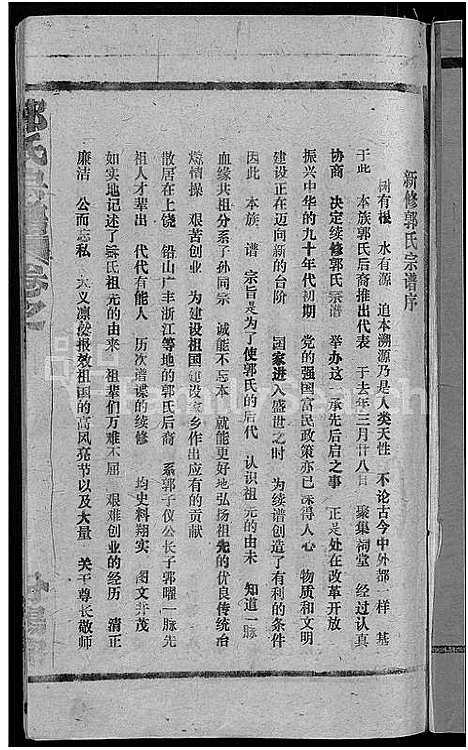 新修郭氏宗谱序
树有根 水有源 追本溯源乃是人类天性 不论古今中外都一样 基
于此 本族郭氏后裔推出代表 于去年三月廿八日 聚集祠堂 经过认真
协商 决定续修郭氏宗谱 举办这一承先后启之事 正是处在改革开放
振兴中华的九十年代初期 党的强国富民政策亦已深得人心 物质和文明
建设正在迈向新的台阶 国家进入盛世之时 为续谱创造了有利的条件
因此 本族 谱 宗旨是为了使郭氏的后代 认识祖元的由来 知道一脉
血缘共祖分系子孙同宗 诚能不忘本 就能更好地弘扬祖先的优良传统冶
炼情操 艰苦创业 为建设祖国建设家乡作出应有的贡献
散居在上饶 铅山广丰浙江等地的郭氏后裔 系郭子仪公长子郭曜一脉先
祖人才辈出 代代有能人 历次谱谍的续修 均史料翔实 图文并茂
如实地记述了郭氏祖元的由来 祖辈们万难不屈 艰难创业的经历 清正
廉洁 公而忘私 大义凛然报效祖国的高风亮节以及大量 关于尊长敬师
郭氏宗谱卷之